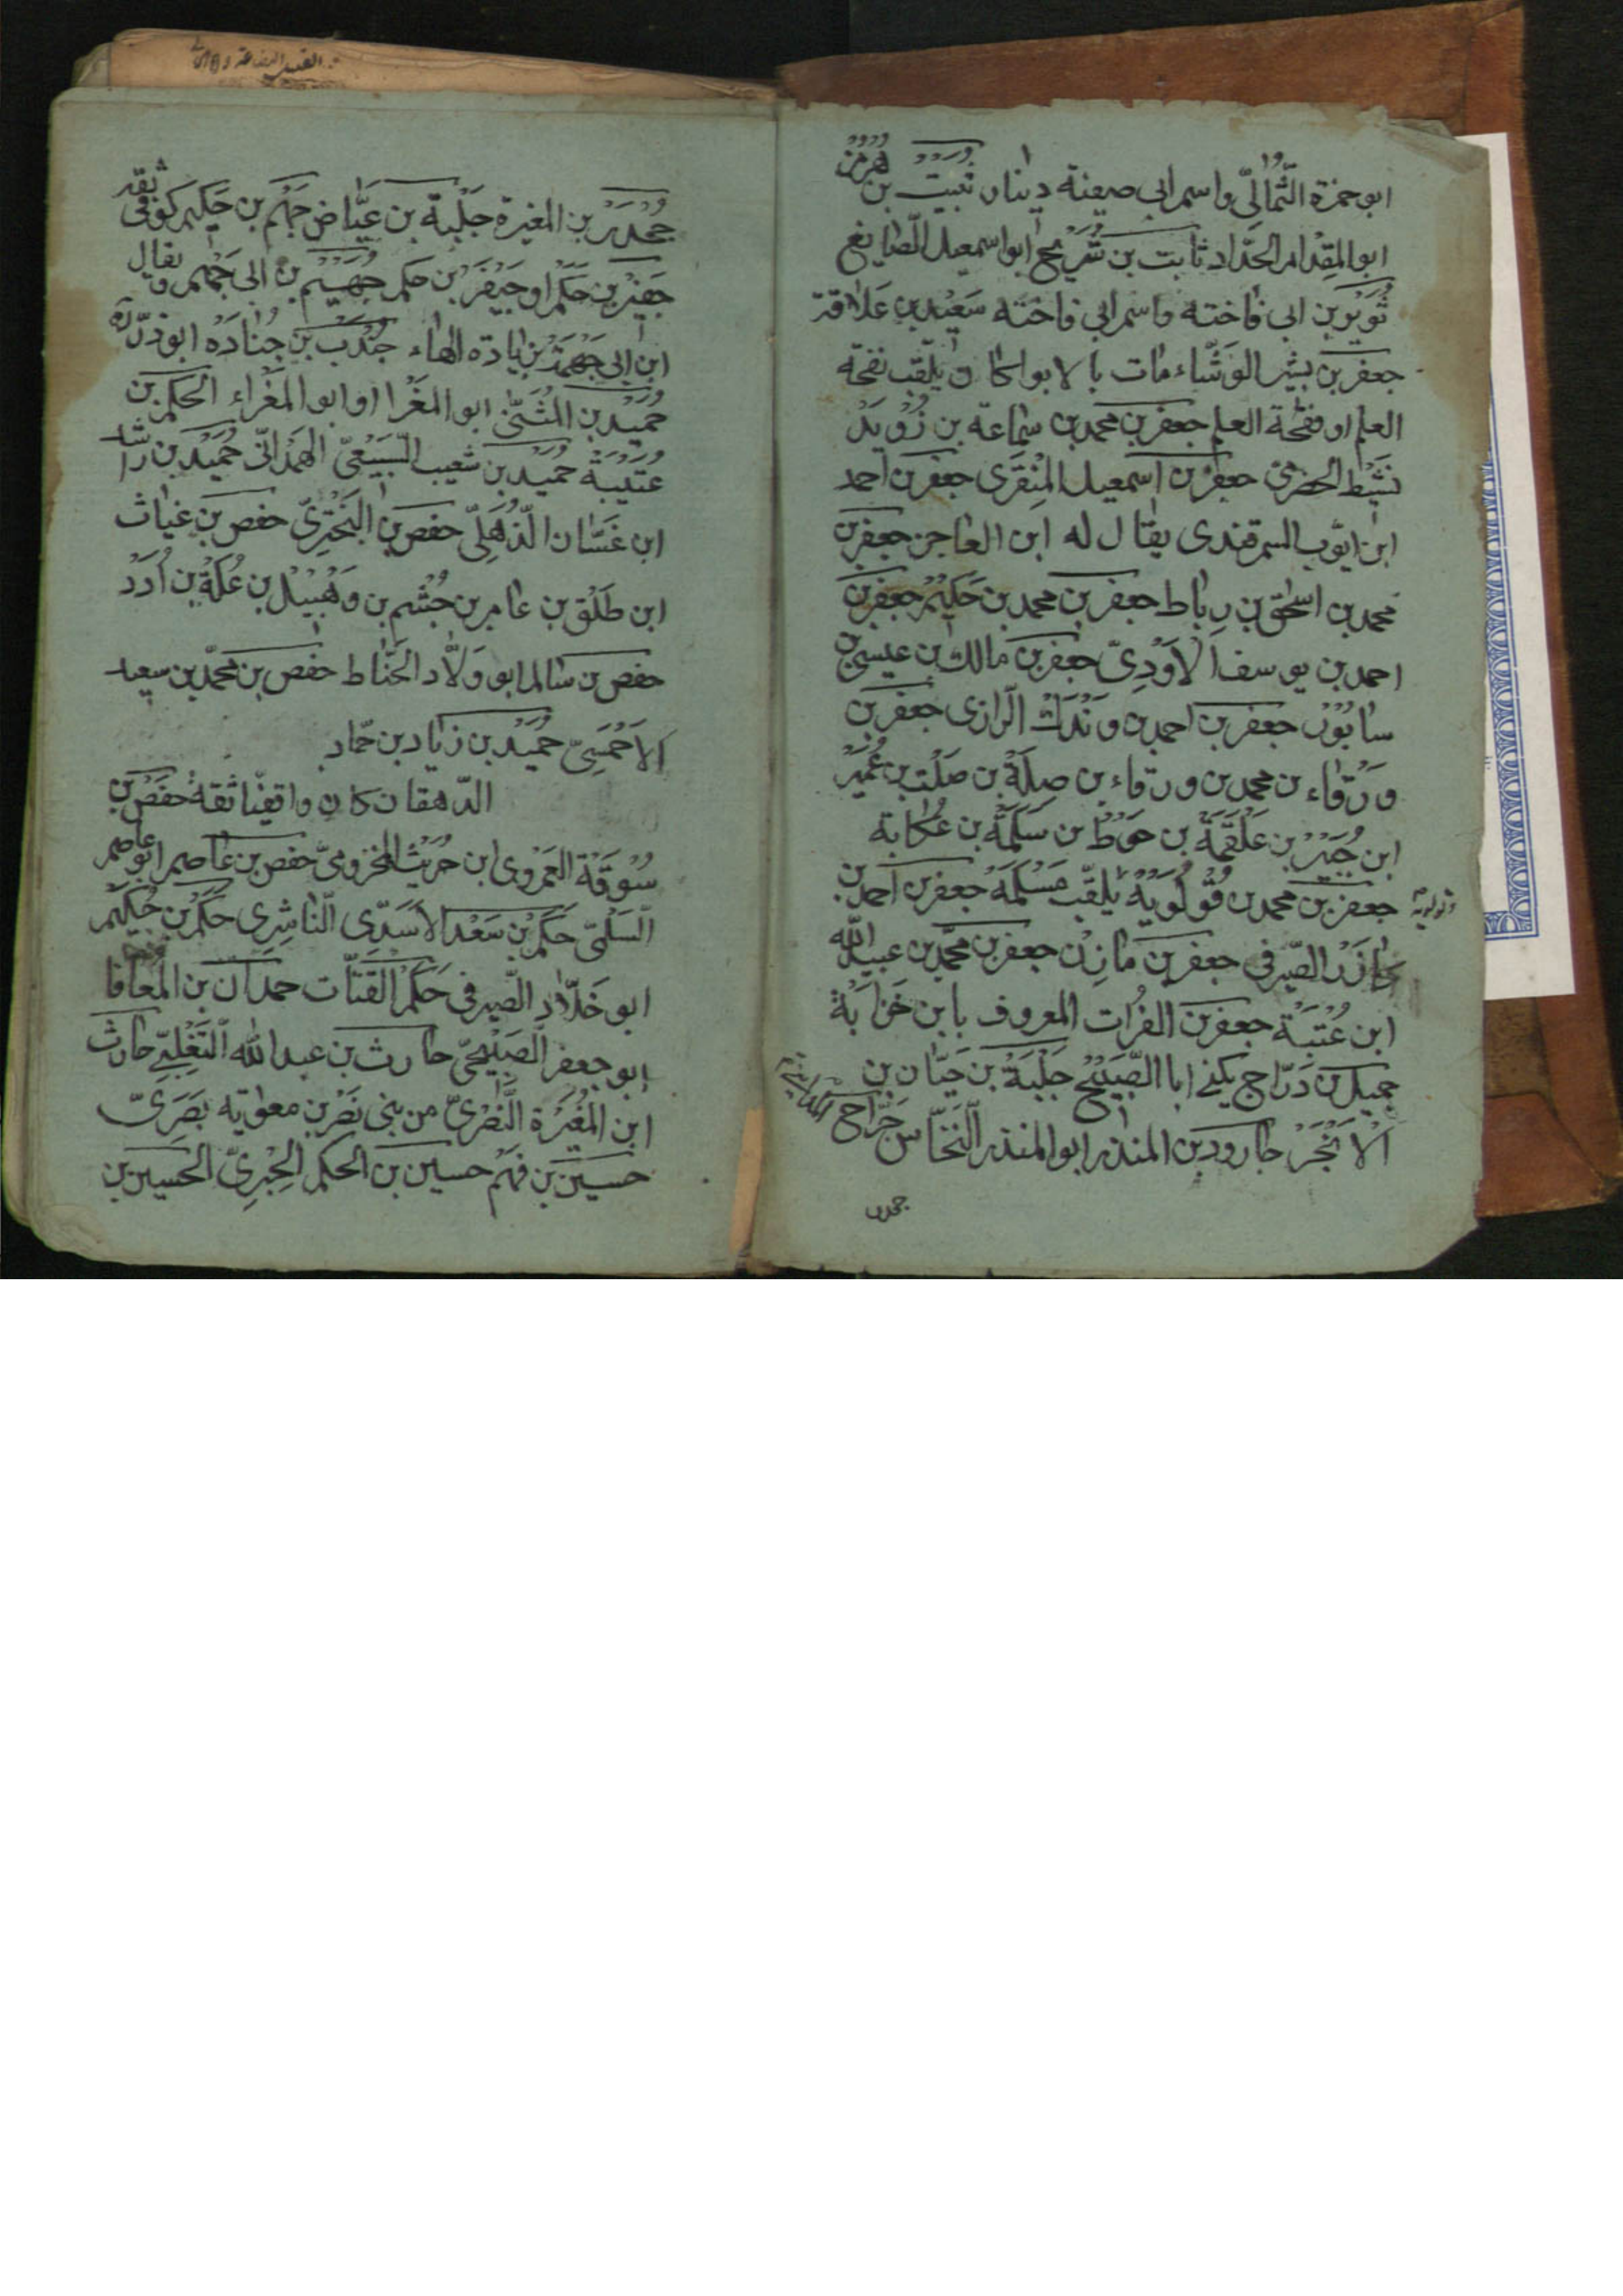 ابو حمزة الثُّمالِىّ واسم ابى صعينة دينار ثبيت بن هرمز
ابو المِقْدام الحدّاد ثابت بن شُرَيْح ابو اسمعيل الصّايغ
ثُوَيْر بن ابى فاخته واسم ابى فاخته سَعيْد بن عَلاقة
جعفر بن بشير الوَشّاء مات بالابواء كان يلقّب نفحة
العلم او فقحة العلم جعفر بن محمد بن سماعة بن زُوَيْد
نَشيْط الحضرمى جعفر بن اسمعيل المِنْقَرى جعفر بن احمد
ابن ايّوب السمرقندى يقال له ابن العاجز جعفر بن
محمد بن اسحٰق بن رِباط جعفر بن محمد بن حَكيْم جعفر بن
احمد بن يوسف الاَوْدِىّ جعفر بن مالك بن عيسى بن
سابُوْر جعفر بن احمد بن وَنْدَك الرّازى جعفر بن
وَرْقاء بن محمد بن ورقاء بن صِلَة بن صَلْت بن عُمَيْر
ابن جُبَيْر بن عَلْقَمَة بن حَوْط بن سَلَمَة بن عُكابة
جعفر بن محمد بن قُوْلُوَيْه يُلقّب مَسْلَمَة جعفر بن احمد بن
قولويه
الصّيرفى جعفر بن مازِن جعفر بن محمّد بن عبيد الله
ابن عُتْبَة جعفر بن الفُرات المعروف بابن خَنزابَة
جميل بن دَرّاج يكنى ابا الصُّبَيْح جَلْبَة بن حَيّان بن
الاَبْجَرْ جارود بن المنذر ابو المنذر النَّخّاس جَرّاح المدائنى
جحدر
جُحْدَرْ بن المغيرة جَلْبة بن عَيّاض جَهْم بن حَكيم كوفى ثقة
جَفِيْر بن حَكَم او جَيْفَرْ بن حكم جُهَيْم بن ابى جَهْم ويقال
ابن ابى جَهْمَة بزيادة الهاء جُنْدَب بن جُنادَة ابو ذرّ ره
حُمَيْد بن المُثَنّى ابو المَغْرا او ابو المَغْراء الحكم بن
عُتَيْبَة حُمَيْد بن شعيب السَّبيْعىّ الهَمْدانّى حُمَيْد بن راشد
ابن غَسّان الذُّهَلىّ حفص بن البَخْتَرِىّ حفص بن غياث
ابن طَلْق بن عامر بن جُشْم بن وَهْبِيْل بن عُكَة بن اُدَدْ
حفص بن سالم ابو وَلّاد الحنّاط حفص بن محمّد بن سعيد
الاَحْمَسِىّ حُمَيْد بن زياد بن حمّاد
الدّهقان كان واقفيّا ثقة حفص بن
سُوْقَة العَمْروى ابن حُرَيْث المخزومىّ حفص بن عاصم ابو عاصم
السَّلْمىّ حَكَم بن سَعْد الاَسَدّى النّاشِرى حَكَم بن حُكَيْم
ابو خَلّاد الصّيرفى حَكَم القَتّات حمدان بن المُعافا
ابو جعفر الصُّبَيْحىّ حارث بن عبد الله التَّغْلِبىّ حارث
ابن المُغِيرَة النَّصْرىّ من بنى نَصْر بن معوٰية بَصَرىّ
حسين بن فَهْم حسين بن الحكم الحِبْرِىّ الحسين بن